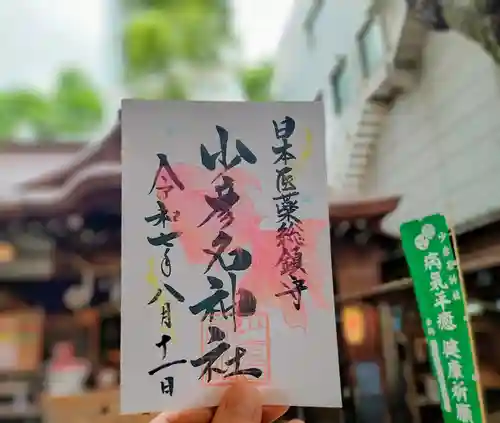 日本医薬総鎮守
少彦名神社
令和七年八月十一日
病気平癒 健康祈